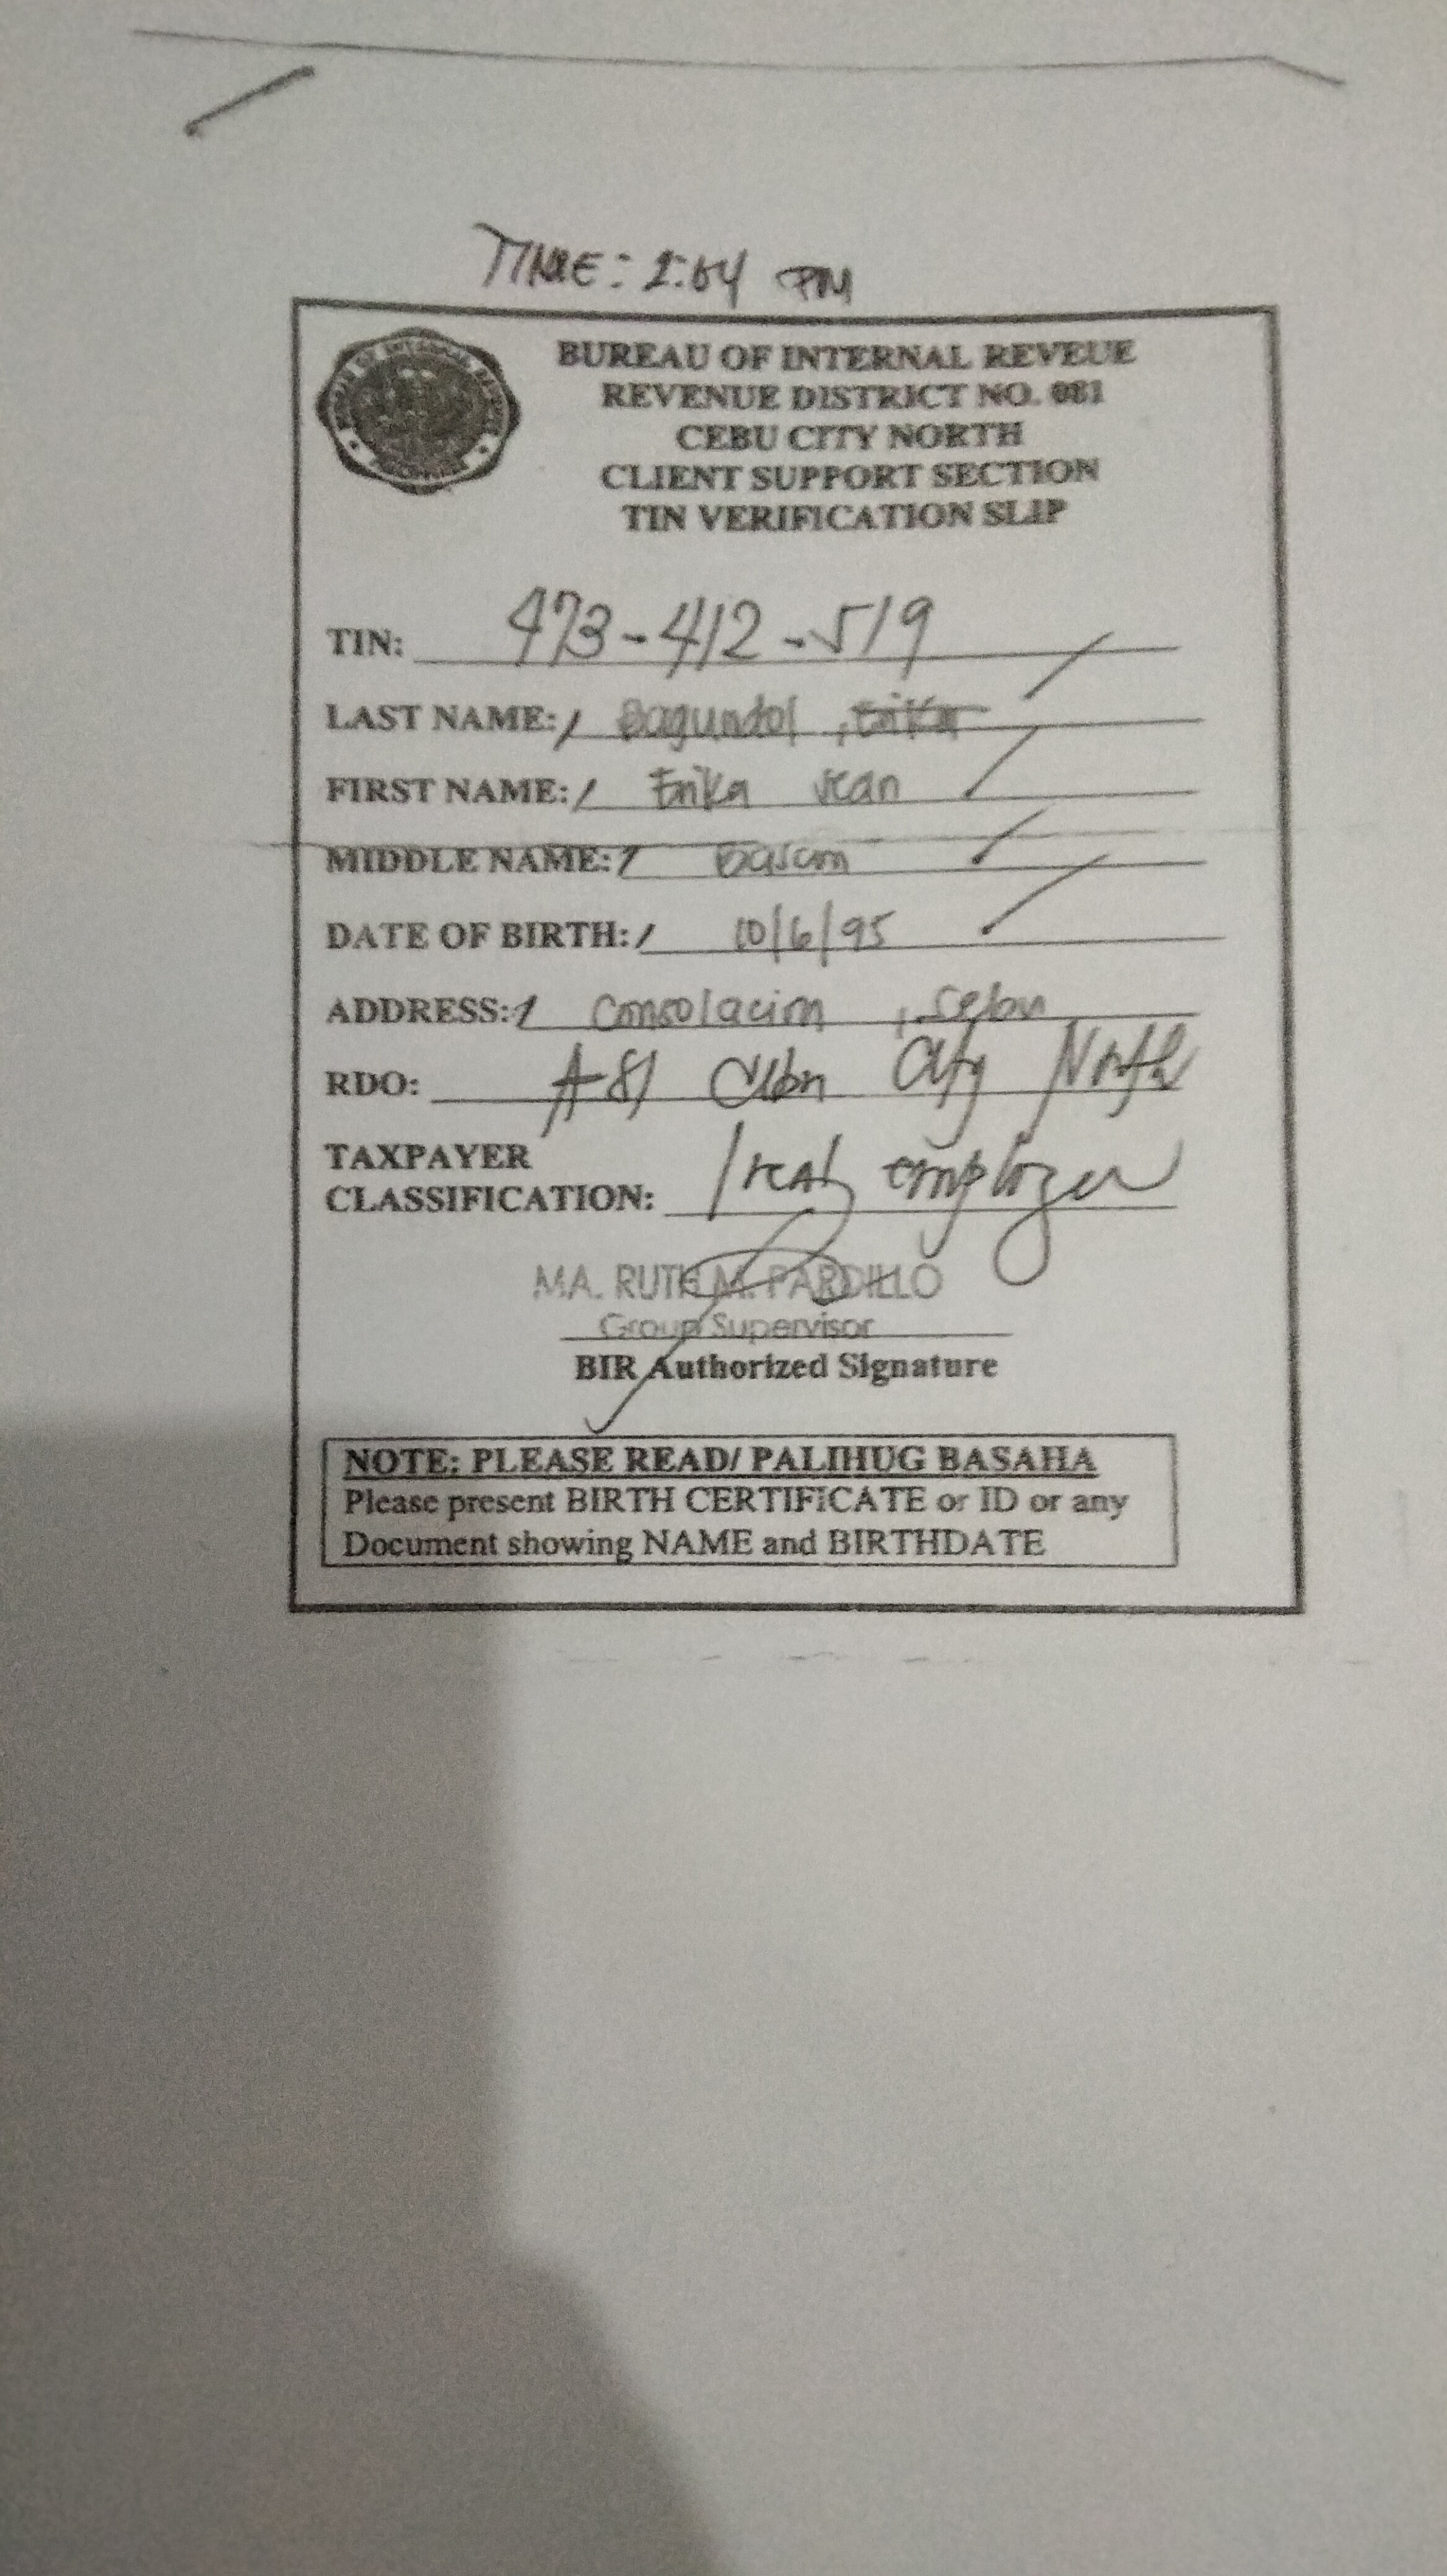 TIME: 2:04 PM
BUREAU OF INTERNAL REVEUE
REVENUE DISTRICT NO. 081
CEBU CITY NORTH
CLIENT SUPPORT SECTION
TIN VERIFICATION SLIP
TIN: 473-412-519
LAST NAME: Bagundol, Erika
FIRST NAME: Erika Jean
MIDDLE NAME:
DATE OF BIRTH: 10/6/95
ADDRESS: Consolacion, Cebu
RDO: A-81 Cebu City North
TAXPAYER
CLASSIFICATION: local employee
MA. RUTH M. PARDILLO
Group Supervisor
BIR Authorized Signature
NOTE: PLEASE READ/ PALIHUG BASAHA
Please present BIRTH CERTIFICATE or ID or any
Document showing NAME and BIRTHDATE